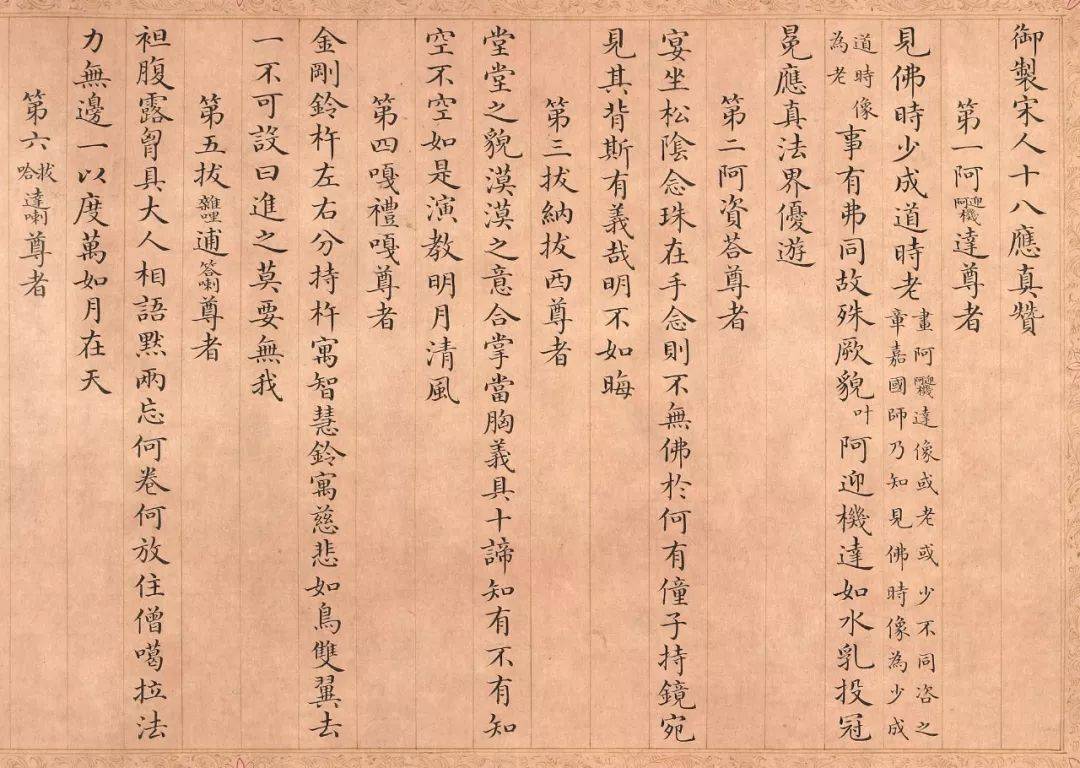 御製宋人十八應真贊
第一阿阿迎機達尊者
見佛時少成道時老畫阿阿迎機達像或老或少不同咨之章嘉國師乃知見佛時像為少成
道時像為老事有弗同故殊厥貌叶阿迎機達如水乳投冠
冕應真法界優遊
第二阿資荅尊者
宴坐松陰念珠在手念則不無佛於何有僮子持鏡宛
見其背斯有義哉明不如晦
第三拔納拔西尊者
堂堂之貌漠漠之意合掌當胸義具十諦知有不有知
空不空如是演教明月清風
第四嘎禮嘎尊者
金剛鈴杵左右分持杵寓智慧鈴寓慈悲如鳥雙翼去
一不可設曰進之莫要無我
第五拔雜哩逋答喇尊者
袒腹露胷具大人相語默兩忘何卷何放住僧噶拉法
力無邊一以度萬如月在天
第六拔哈達喇尊者